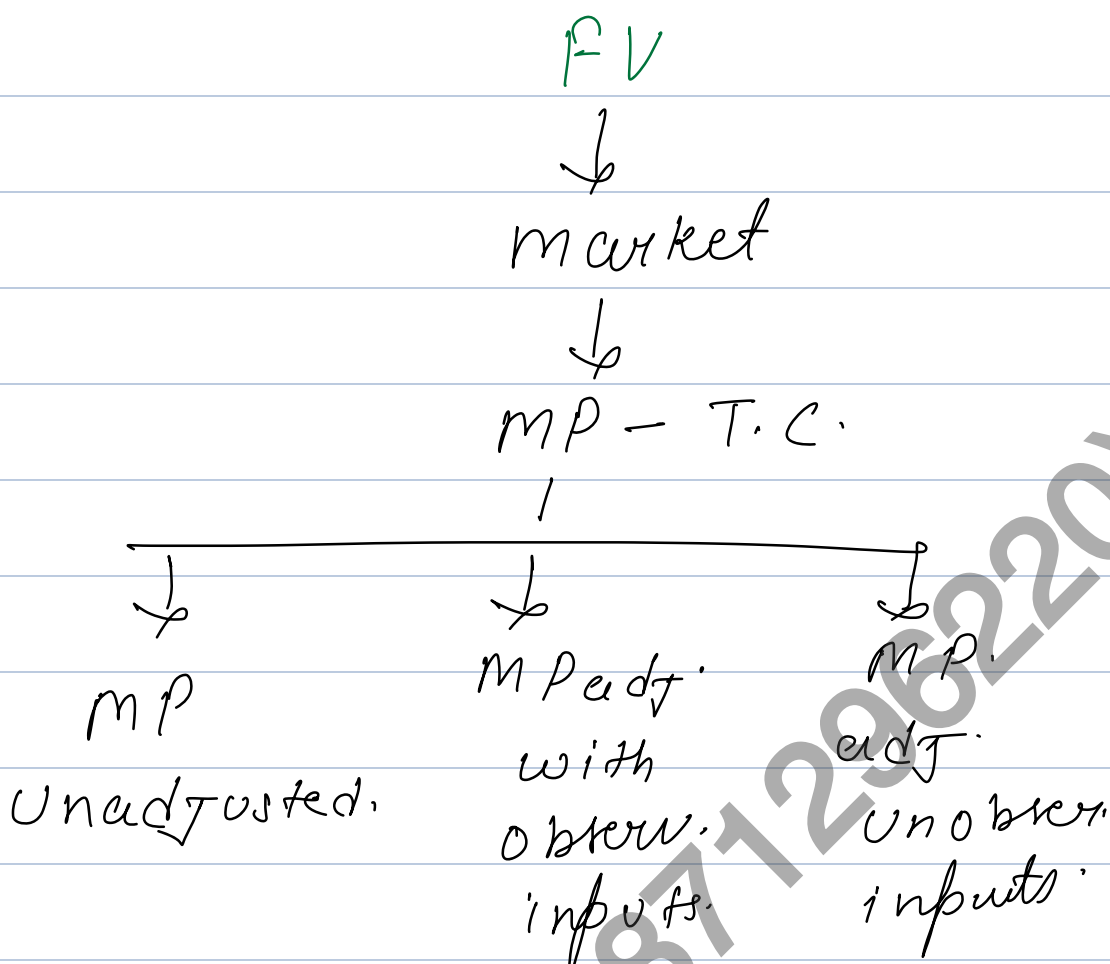 FV
market
MP - T.C.
MP
Unadjusted.
MP adj.
with
observ.
inputs.
MP.
adj.
unobser.
inputs.
871296220)